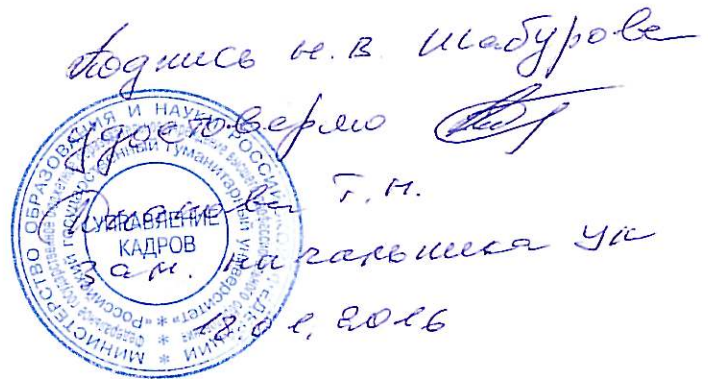 Подпись Н.В. Шабурова
удостоверяю
Т.Н.
Зам. начальника УК
18.01.2016
МИНИСТЕРСТВО ОБРАЗОВАНИЯ И НАУКИ РОССИЙСКОЙ ФЕДЕРАЦИИ
«Российский государственный гуманитарный университет»
УПРАВЛЕНИЕ
КАДРОВ